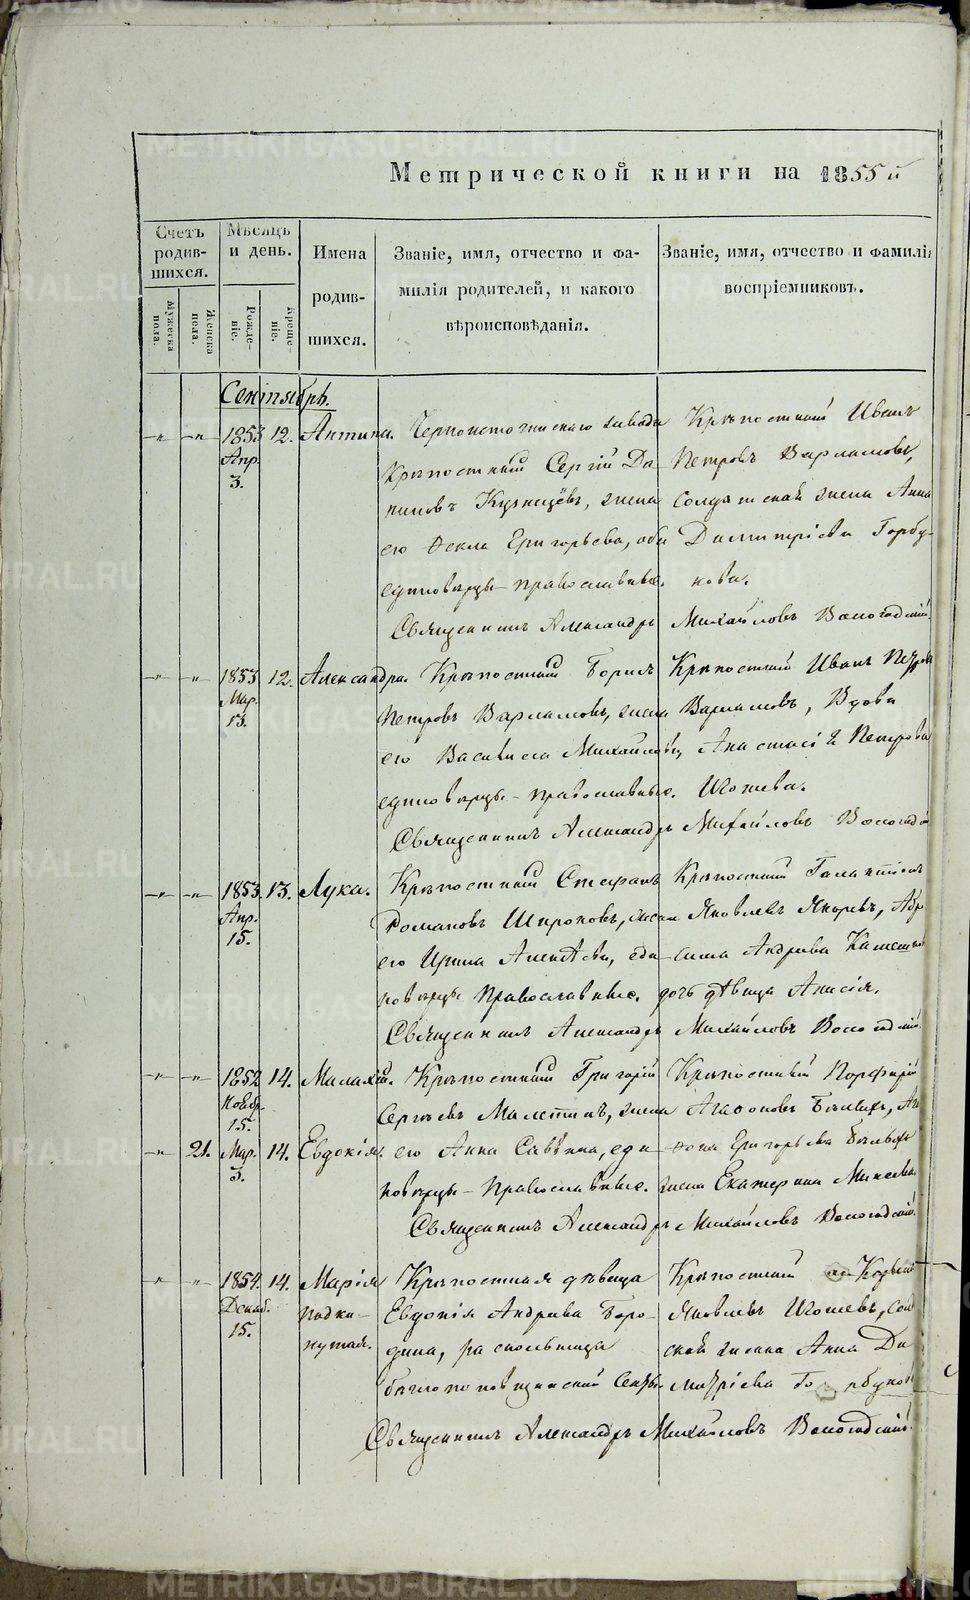 Метрической книги на 1855й
Счетъ родившихся.
Мѣсяцъ и день.
Имена родившихся.
Званіе, имя, отчество и фамилія родителей, и какого вѣроисповѣданія.
Званіе, имя, отчество и фамилія воспріемниковъ.
Мужеска пола.
Женска пола.
Рожденіе.
Крещеніе.
Сентябрь.
1853 Апр. 3.
12.
Антипа.
Черноисточинскаго завода
Крѣпостный Сергій Да-
ниловъ Кузнецовъ, жена
его Ѳекла Григорьева, оба
единовѣрцы православные.
Крѣпостный Иванъ
Петровъ Варламовъ,
Солдатская жена Анна
Димитріева Горбу-
нова.
Священникъ Александръ Михайловъ Вологодскій.
1853 Мар. 13.
12.
Александра.
Крѣпостный Борисъ
Петровъ Варламовъ, жена
его Васа Михайлова,
единовѣрцы православные.
Крѣпостный Иванъ Петров
Варламовъ, Вдова
Анастасія Петрова
Шотева.
Священникъ Александръ Михайловъ Вологодскій
1853. Апр. 15.
13.
Лука.
Крѣпостный Стефанъ
Романовъ Широковъ, жена
его Ирина Алексѣева, еди-
новѣрцы Православные.
Крѣпостный Галактіонъ
Яковлевъ
Андреева
дочь дѣвица Анисія.
Священникъ Александръ Михайловъ Вологодскій.
1852 Ноябр. 15.
14.
Малахій.
21.
Мар. 3.
14.
Евдокія.
Крѣпостный Григорій
Сергѣевъ Малетинъ, жена
его Анна Савина, еди-
новѣрцы Православные.
Крѣпостный Порфирій
Агафоновъ
Григорьева
жена Екатерина
Священникъ Александръ Михайловъ Вологодскій.
1854. Декаб. 15.
14.
Марія
подки-
нутая.
Крѣпостная дѣвица
Евдокія Андреева Боро-
дина, раскольница
бѣглопоповщинской Секты.
Крѣпостный
Яковлевъ Шотевъ, Солдат
ская жена Анна Ди
митріева Горбунова
Священникъ Александръ Михайловъ Вологодскій.
METRIKI.GASO-URAL.RU